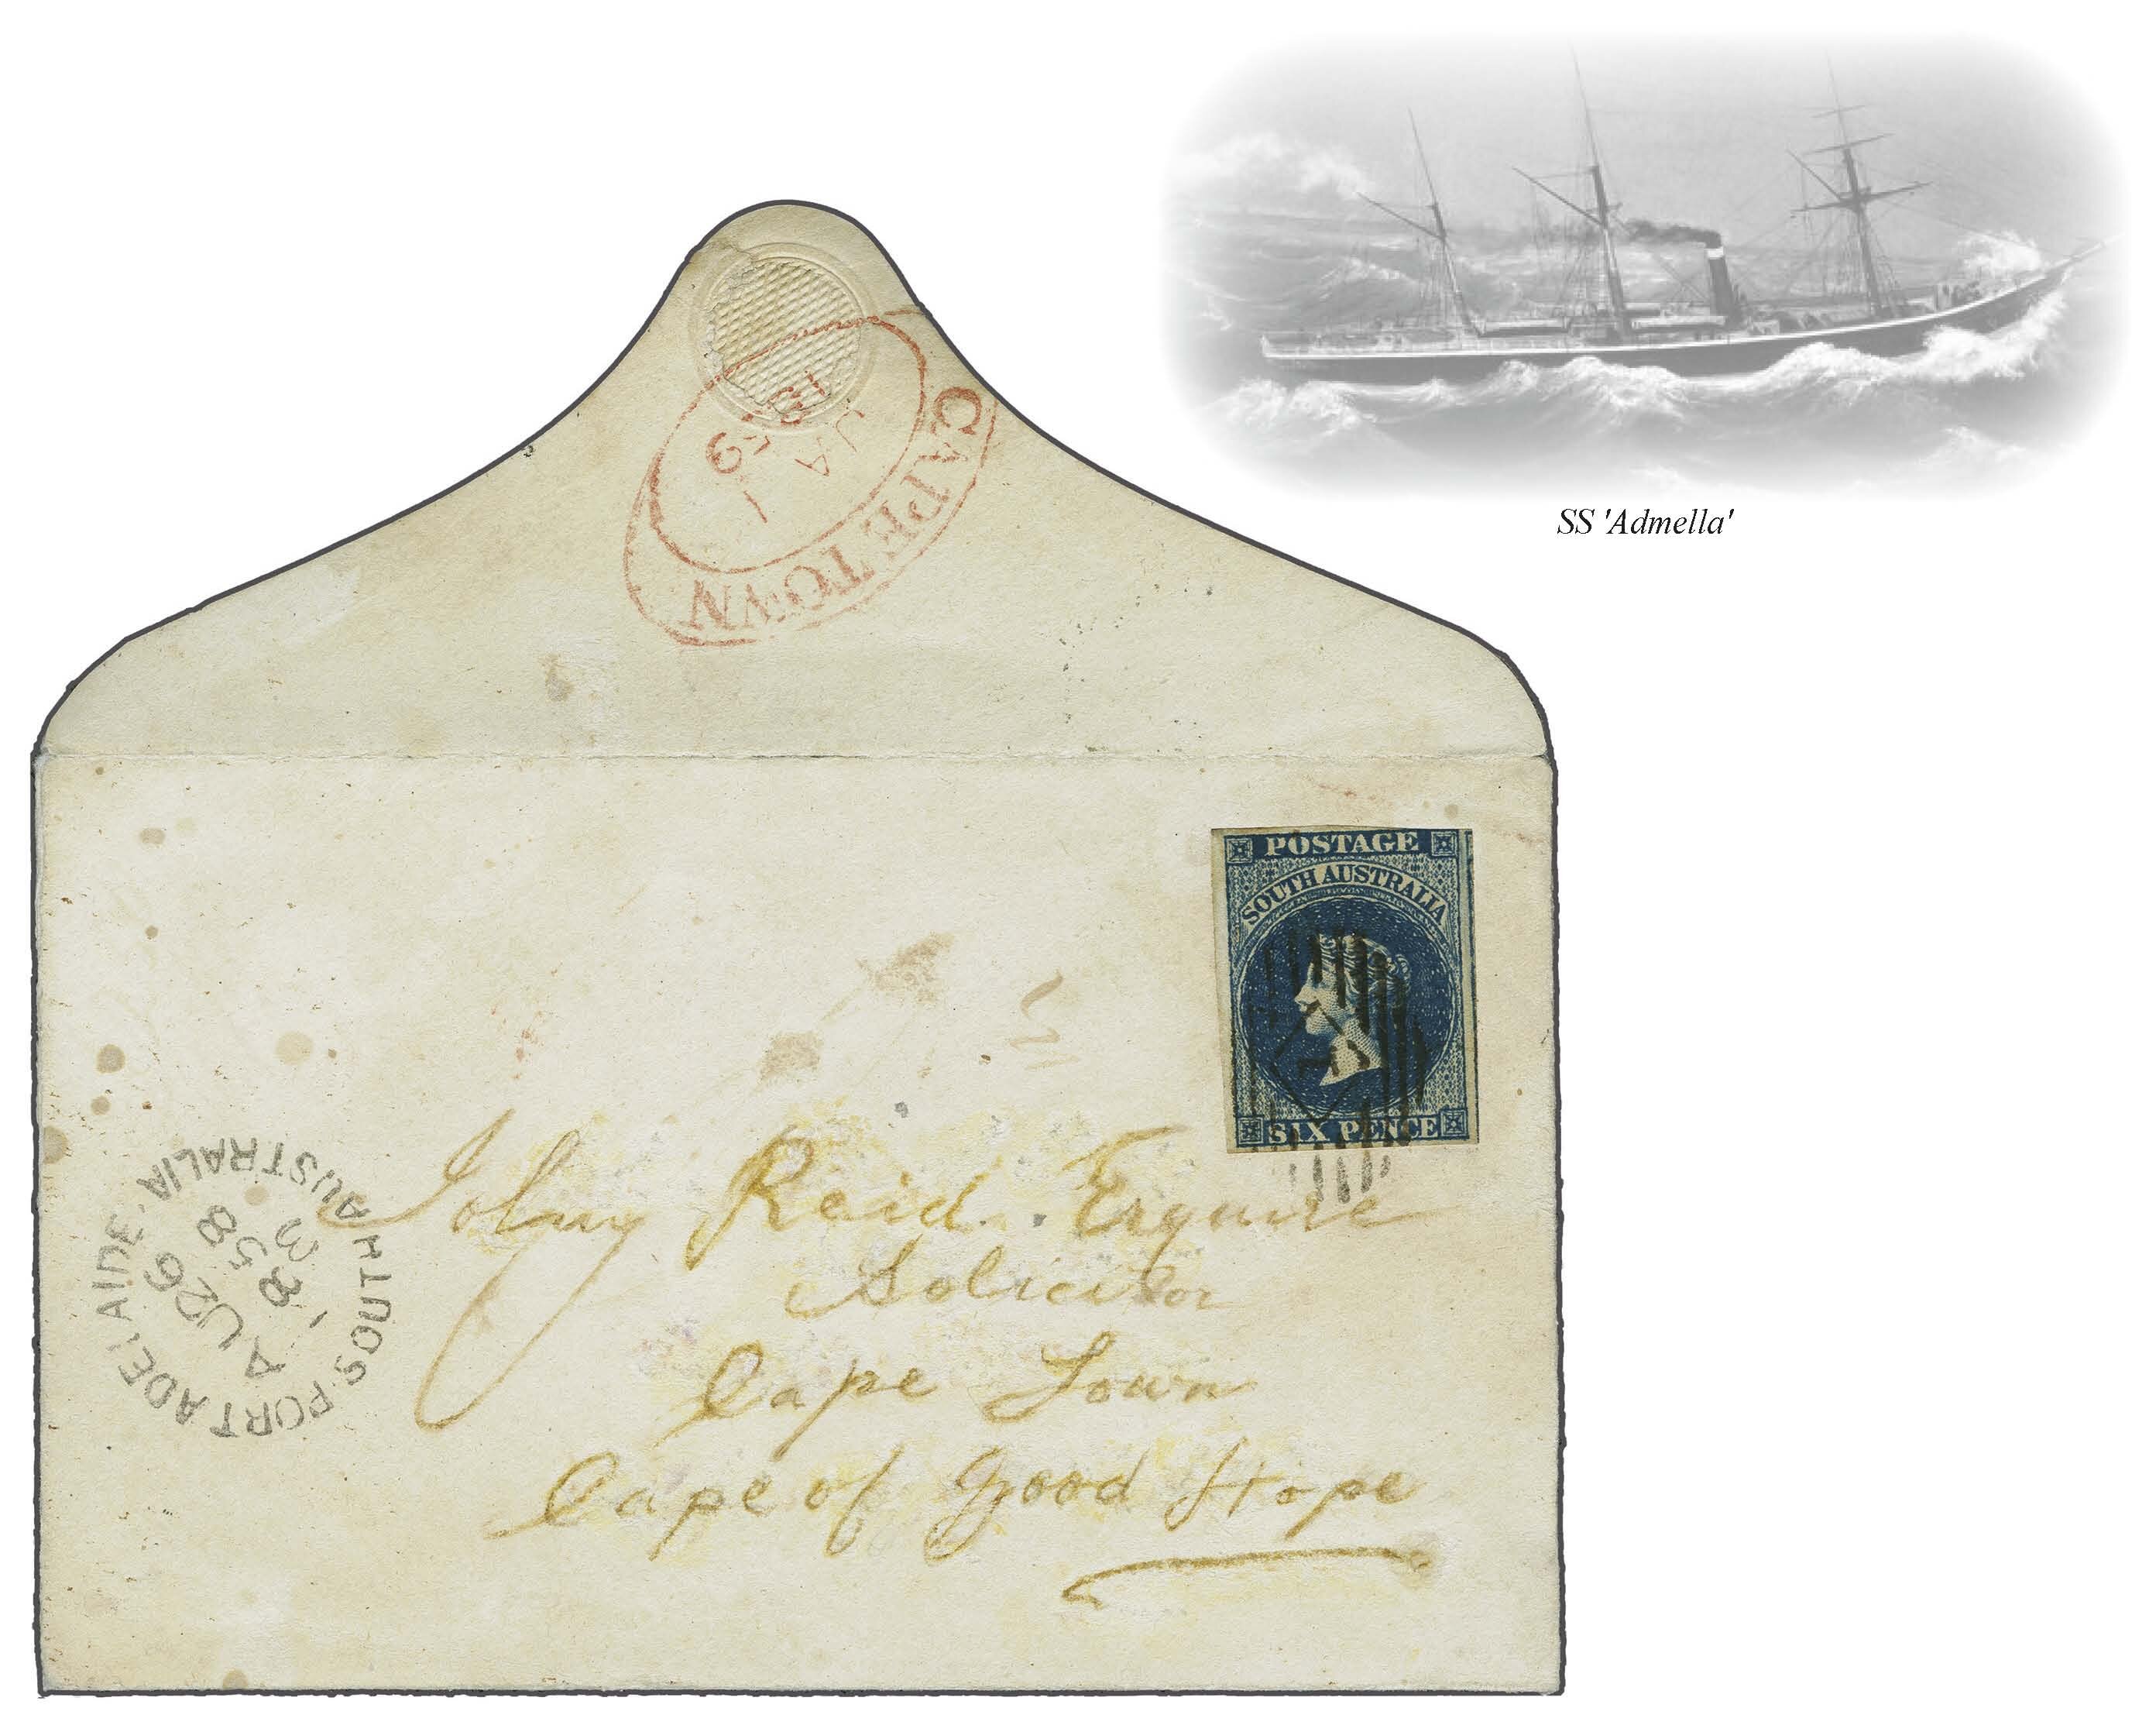 SS 'Admella'
CAPE TOWN
JA 1
1859
POSTAGE
SOUTH AUSTRALIA
SIX PENCE
Reid. Esquire
Solicitor
Cape Town
Cape of Good Hope
PORT ADELAIDE. SOUTH AUSTRALIA
AU 26
1858
3